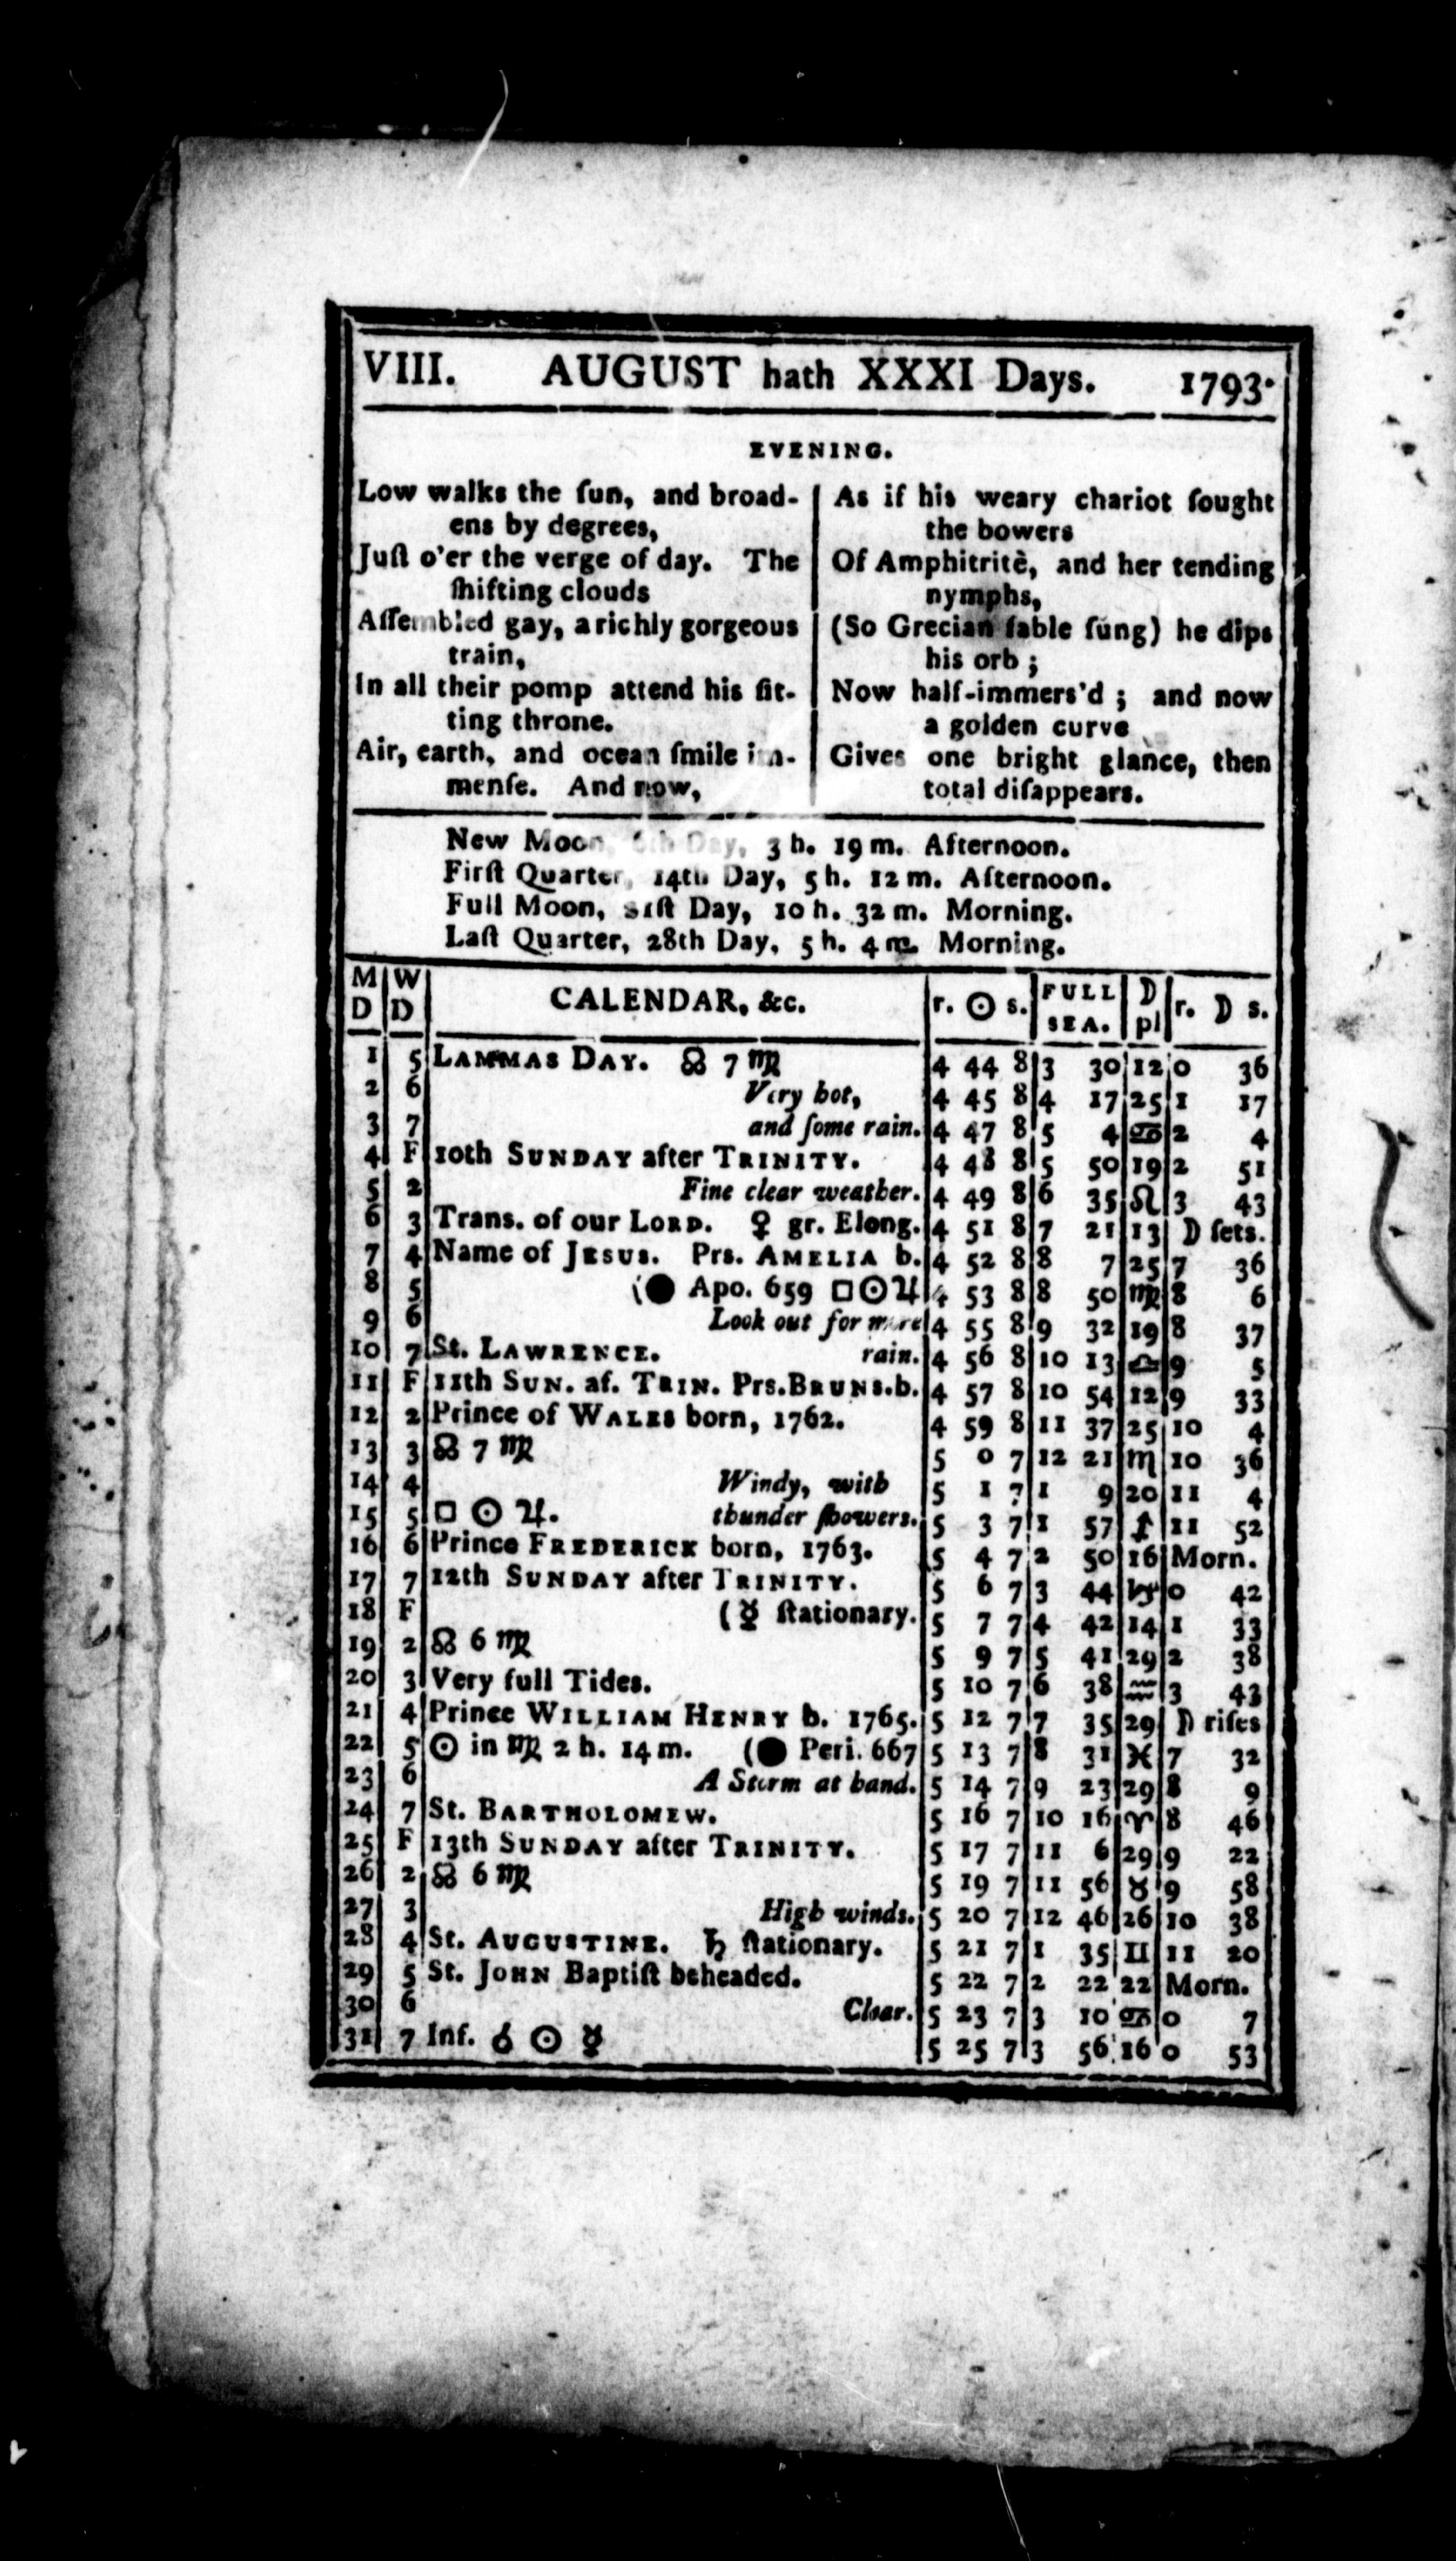 VIII. AUGUST hath XXXI Days. 1793.
EVENING.
Low walks the ſun, and broad-
ens by degrees,
Juſt o'er the verge of day. The
ſhifting clouds
Aſſembled gay, a richly gorgeous
train,
In all their pomp attend his ſit-
ting throne.
Air, earth, and ocean ſmile im-
menſe. And now,
As if his weary chariot ſought
the bowers
Of Amphitritè, and her tending
nymphs,
(So Grecian fable ſung) he dips
his orb ;
Now half-immers'd ; and now
a golden curve
Gives one bright glance, then
total diſappears.
New Moon, Day, 3 h. 19 m. Afternoon.
Firſt Quarter, 14th Day, 5 h. 12 m. Afternoon.
Full Moon, 21ſt Day, 10 h. 32 m. Morning.
Laſt Quarter, 28th Day, 5 h. 4 m. Morning.
M D W D CALENDAR, &c. r. ☉ s. FULL SEA. ☽ pl r. ☽ s.
1 5 LAMMAS DAY. ☊ 7 ♍ 4 44 8 3 30 12 0 36
2 6 Very hot, 4 45 8 4 17 25 1 17
3 7 and ſome rain. 4 47 8 5 4 ♋ 2 4
4 F 10th SUNDAY after TRINITY. 4 48 8 5 50 19 2 51
5 2 Fine clear weather. 4 49 8 6 35 ♌ 3 43
6 3 Trans. of our LORD. ♀ gr. Elong. 4 51 8 7 21 13 ☽ ſets.
7 4 Name of JESUS. Prs. AMELIA b. 4 52 8 8 7 25 7 36
8 5 (● Apo. 659 □ ☉ ♃ 4 53 8 8 50 ♍ 8 6
9 6 Look out for more 4 55 8 9 32 19 8 37
10 7 St. LAWRENCE. rain. 4 56 8 10 13 ♎ 9 5
11 F 11th SUN. af. TRIN. Prs. BRUNS. b. 4 57 8 10 54 12 9 33
12 2 Prince of WALES born, 1762. 4 59 8 11 37 25 10 4
13 3 ☊ 7 ♍ 5 0 7 12 21 ♏ 10 36
14 4 Windy, with 5 1 7 1 9 20 11 4
15 5 □ ☉ ♃. thunder ſhowers. 5 3 7 1 57 ♐ 11 52
16 6 Prince FREDERICK born, 1763. 5 4 7 2 50 16 Morn.
17 7 12th SUNDAY after TRINITY. 5 6 7 3 44 ♑ 0 42
18 F (☿ ſtationary. 5 7 7 4 42 14 1 33
19 2 ☊ 6 ♍ 5 9 7 5 41 29 2 38
20 3 Very full Tides. 5 10 7 6 38 ♒ 3 43
21 4 Prince WILLIAM HENRY b. 1765. 5 12 7 7 35 29 ☽ riſes
22 5 ☉ in ♍ 2 h. 14 m. (● Peri. 667 5 13 7 8 31 ♓ 7 32
23 6 A Storm at hand. 5 14 7 9 23 29 8 9
24 7 St. BARTHOLOMEW. 5 16 7 10 16 ♈ 8 46
25 F 13th SUNDAY after TRINITY. 5 17 7 11 6 29 9 22
26 2 ☊ 6 ♍ 5 19 7 11 56 ♉ 9 58
27 3 High winds. 5 20 7 12 46 26 10 38
28 4 St. AUGUSTINE. ♄ ſtationary. 5 21 7 1 35 ♊ 11 20
29 5 St. JOHN Baptiſt beheaded. 5 22 7 2 22 22 Morn.
30 6 Clear. 5 23 7 3 10 ♋ 0 7
31 7 Inf. ☌ ☉ ☿ 5 25 7 3 56 16 0 53